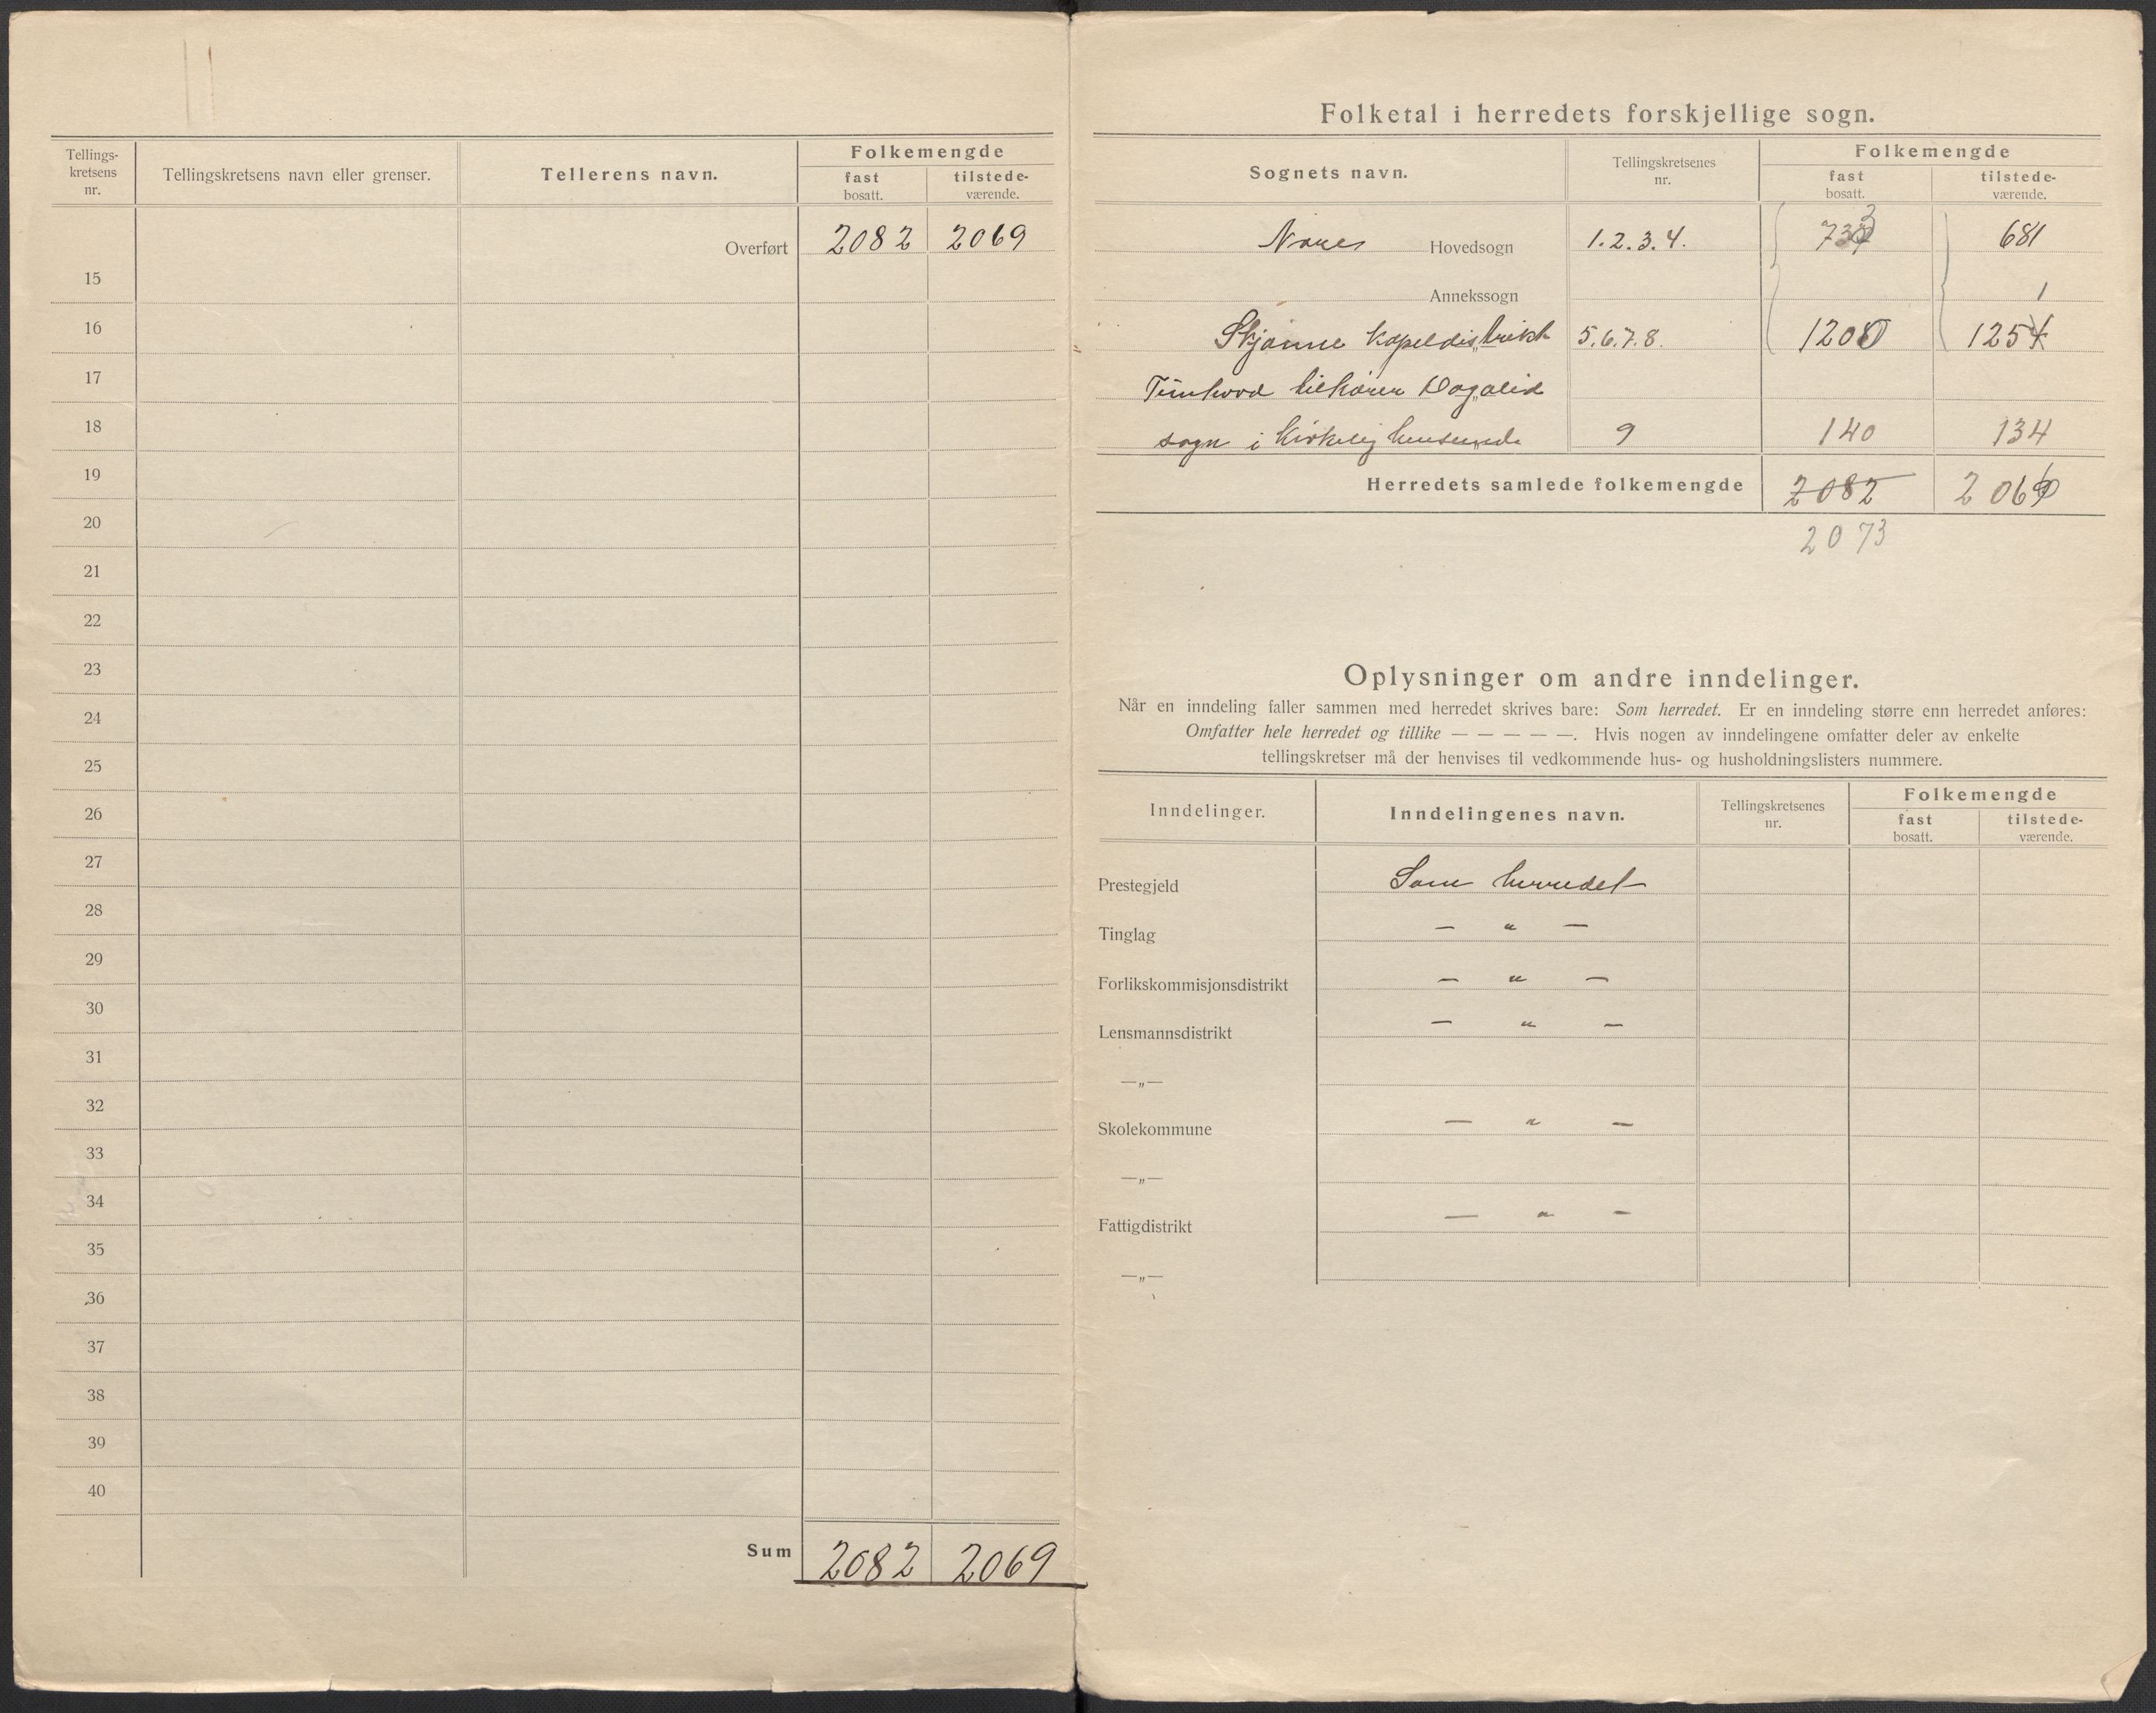 Tellings-
kretsens
nr.
Tellingskretsens navn eller grenser.
Tellerens navn.
Folkemengde
fast
bosatt.
tilstede-
værende.
Overført 2082 2069
15
16
17
18
19
20
21
22
23
24
25
26
27
28
29
30
31
32
33
34
35
36
37
38
39
40
Sum 2082 2069
Folketal i herredets forskjellige sogn.
Sognets navn.
Tellingskretsenes
nr.
Folkemengde
fast
bosatt.
tilstede-
værende.
Nores Hovedsogn 1.2.3.4. 733 681
Annekssogn 1
Skjønne Kapeldistrikt 5.6.7.8. 1200 125
tilhører Dagalid
sogn i Kirkelig henseende 9 140 134
Herredets samlede folkemengde 2082 206
2073
Oplysninger om andre inndelinger.
Når en inndeling faller sammen med herredet skrives bare: Som herredet. Er en inndeling større enn herredet anføres:
Omfatter hele herredet og tillike — — — — —. Hvis nogen av inndelingene omfatter deler av enkelte
tellingskretser må der henvises til vedkommende hus- og husholdningslisters nummere.
Inndelinger.
Inndelingenes navn.
Tellingskretsenes
nr.
Folkemengde
fast
bosatt.
tilstede-
værende.
Prestegjeld Som herredet
Tinglag — " —
Forlikskommisjonsdistrikt — " —
Lensmannsdistrikt — " —
—„—
Skolekommune — " —
—„—
Fattigdistrikt — " —
—„—